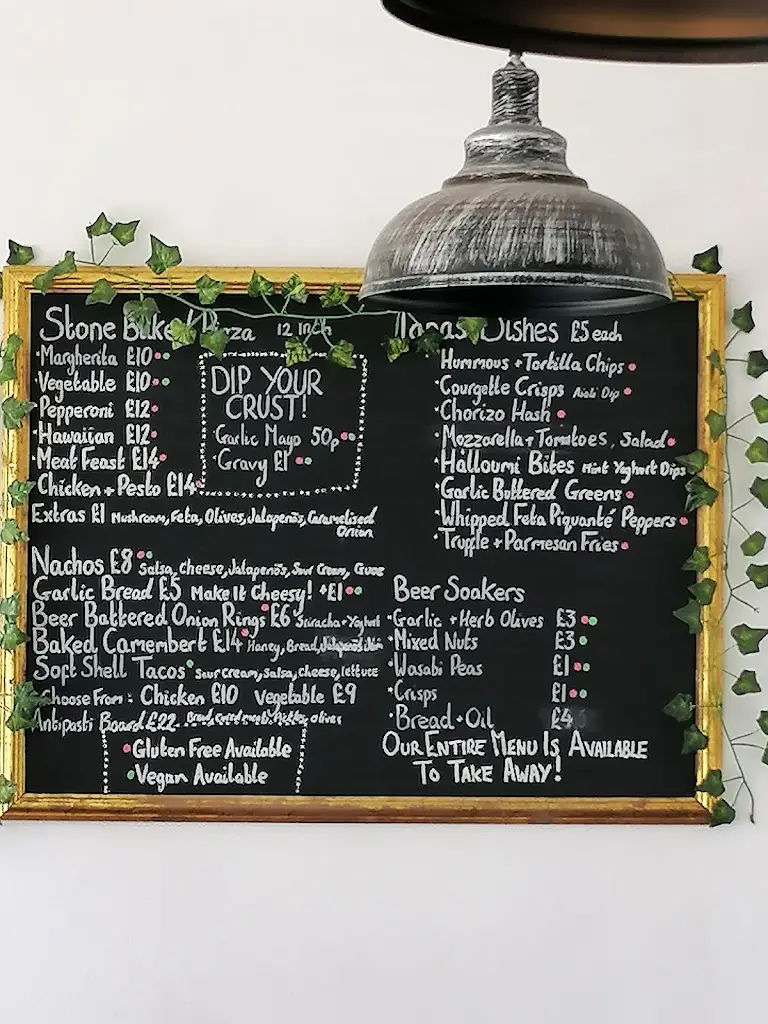 Stone Baked Pizza 12 inch
·Margherita £10
·Vegetable £10
·Pepperoni £12
·Hawaiian £12
·Meat Feast £14
·Chicken + Pesto £14
DIP YOUR
CRUST!
·Garlic Mayo 50p
·Gravy £1
Extras £1 Mushroom, Feta, Olives, Jalapenõs, Caramelised
Onion
Nachos £8 Salsa, Cheese, Jalapenõs, Sour Cream, Guac
Garlic Bread £5 Make It Cheesy! +£1
Beer Battered Onion Rings £6 Sriracha + Yoghurt
Baked Camembert £14 Honey, Bread,
Soft Shell Tacos Sour Cream, Salsa, Cheese, lettuce
Choose From: Chicken £10 Vegetable £9
Antipasti Board £22 Bread, Cured meats, Pickles, olives
·Gluten Free Available
·Vegan Available
Tapas Dishes £5 each
·Hummous + Tortilla Chips
·Courgette Crisps Aioli Dip
·Chorizo Hash
·Mozzarella + Tomatoes, Salad
·Halloumi Bites Mint Yoghurt Dips
·Garlic Buttered Greens
·Whipped Feta Piquanté Peppers
·Truffle + Parmesan Fries
Beer Soakers
·Garlic + Herb Olives £3
·Mixed Nuts £3
·Wasabi Peas £1
·Crisps £1
·Bread + Oil £4
Our Entire Menu Is Available
To Take Away!